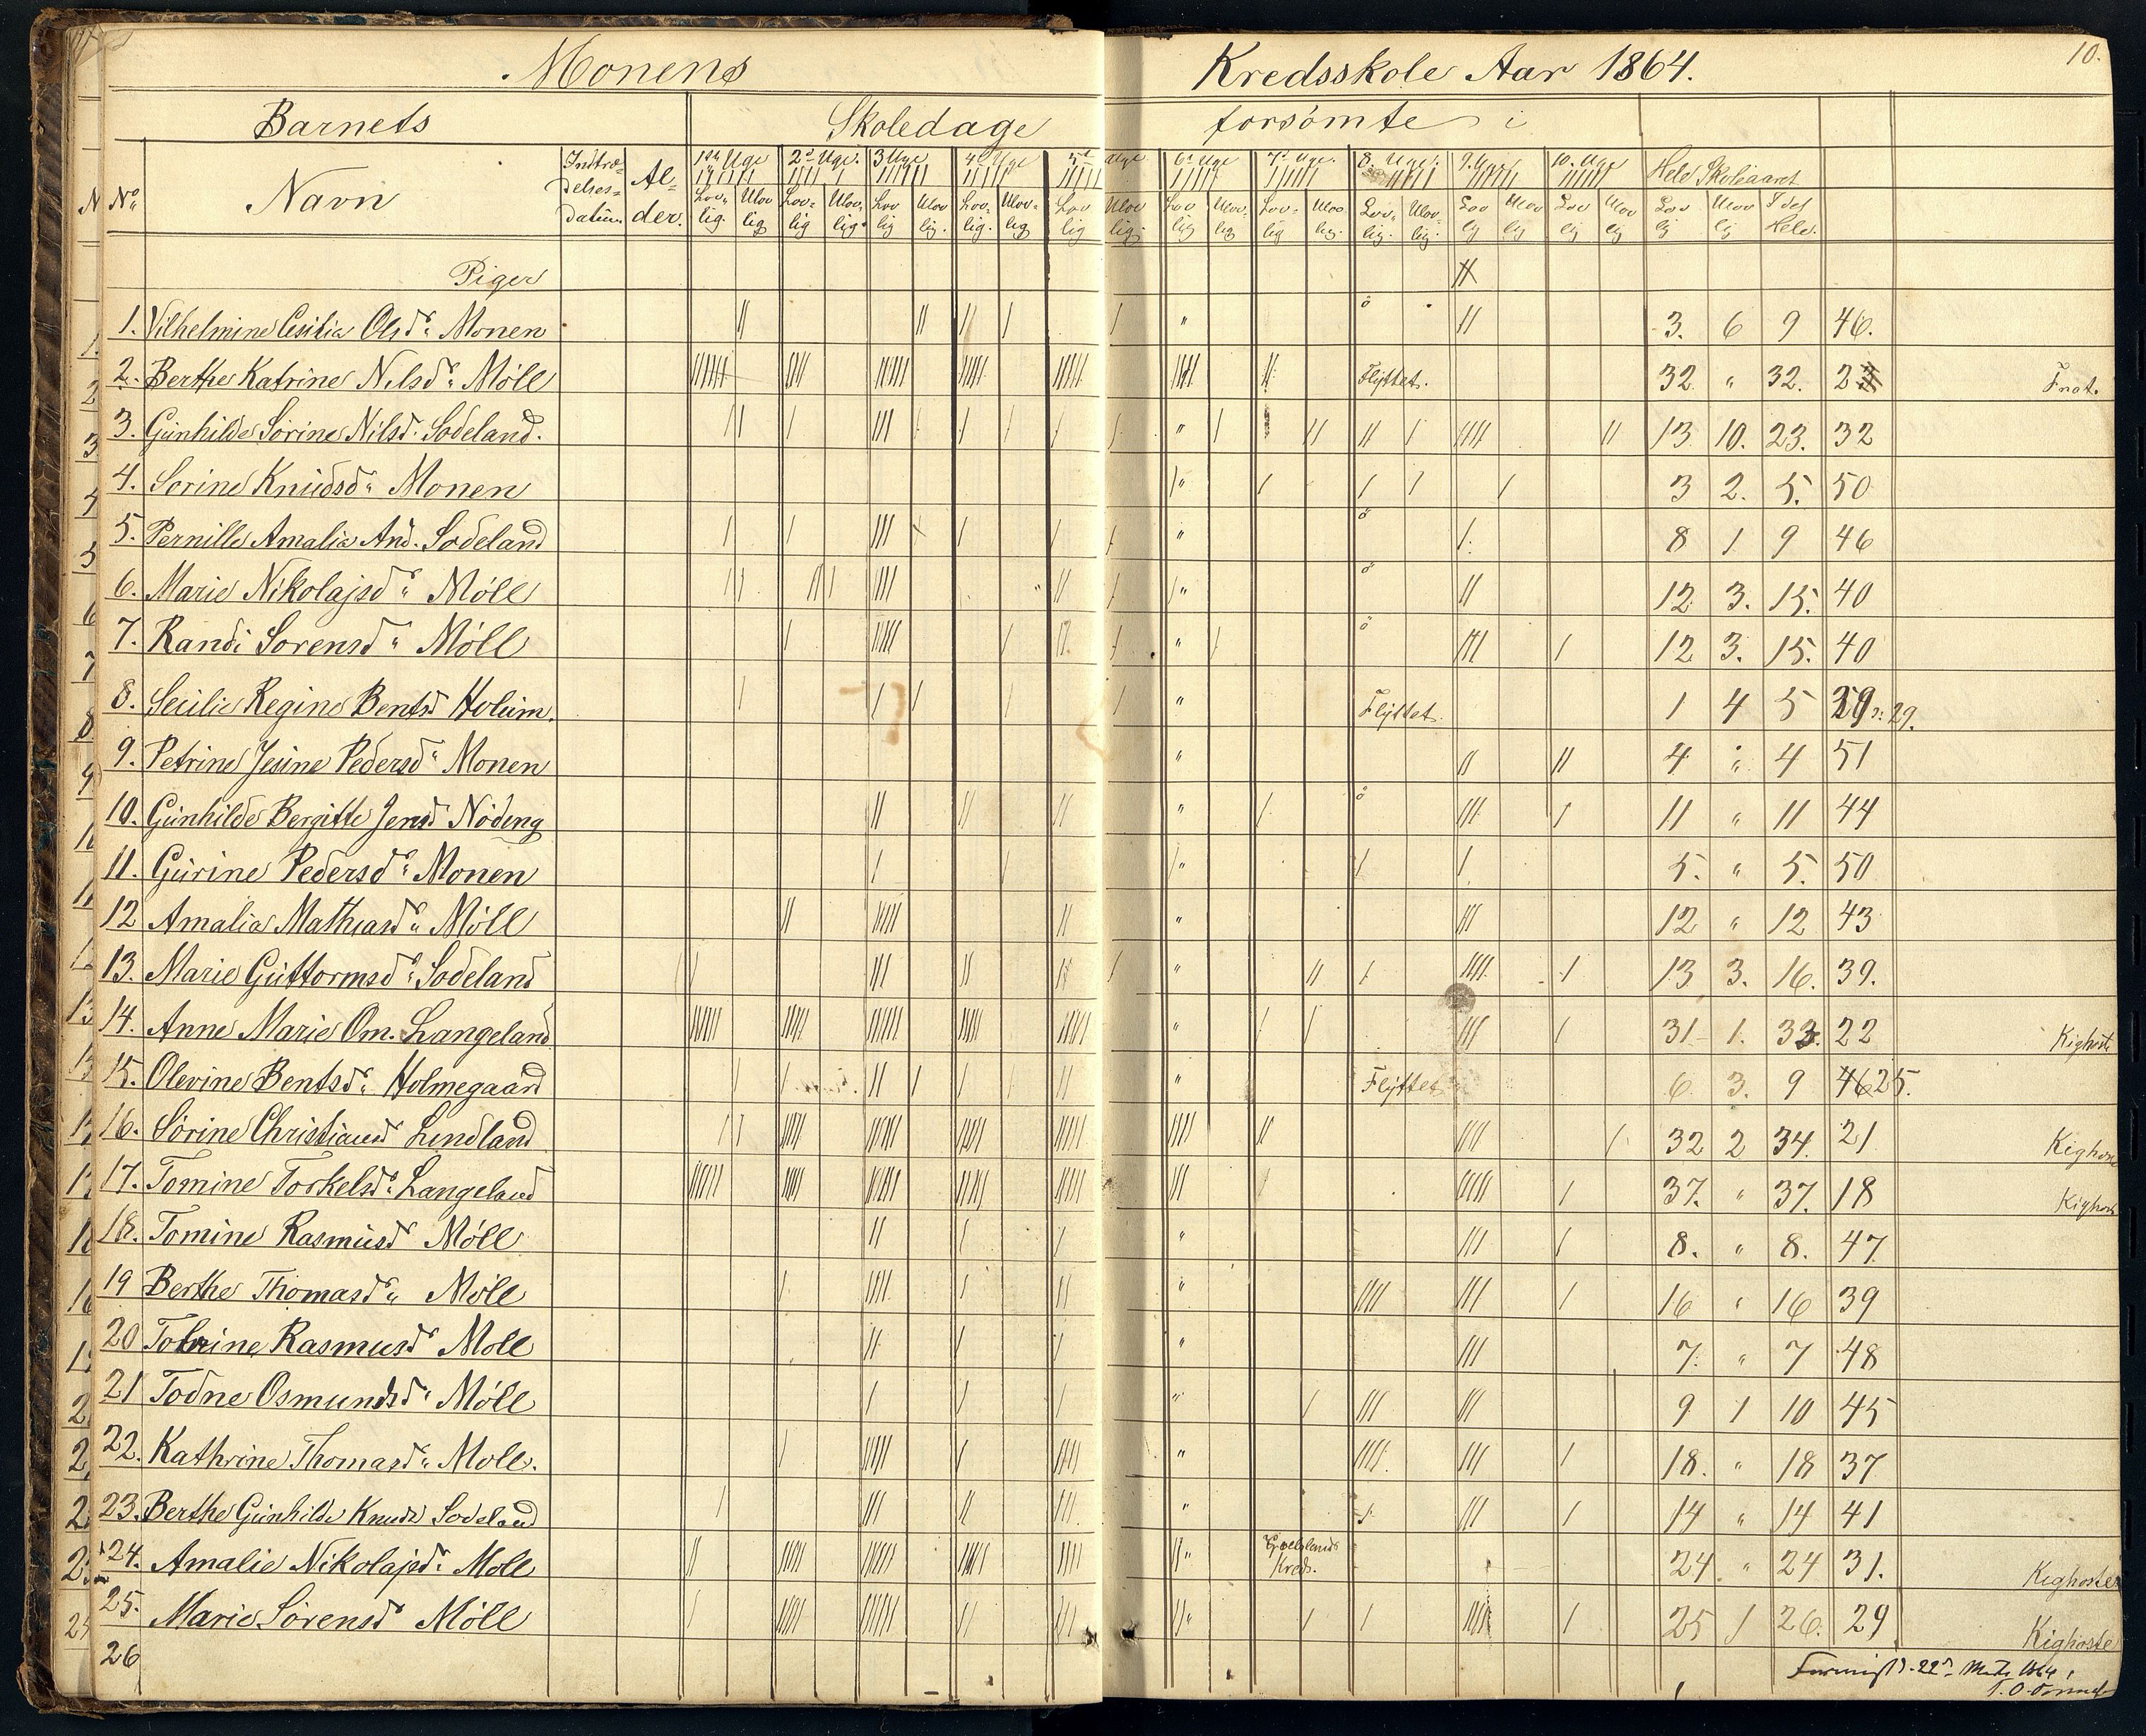 Monens Kredsskole Aar 1864. 10.
Barnets Skoledage forsömte i
No Navn Indtræ-delses-datum. Al-der. 1ste Uge 2d Uge. 3 Uge 4d Uge 5t Uge 6t Uge 7d Uge. 8. Uge. 9. Uge 10. Uge Hele Skoleaaret
Lov-lig. Ulov lig Lov-lig Ulov-lig Lov lig Ulov lig. Lov-lig. Ulov-lig Lov lig Ulov lig. Lov lig Ulov. lig Lov-lig Ulov. lig. Lov-lig. Ulov-lig. Lov lig Ulov lig Lov lig Ulov lig Lov lig Ulov lig I det Hele.
Piger
1. Vilhelmine Cesilia Olsd. Monen 3. 6 9 46.
2. Berthe Katrine Nilsd. Möll Flyttet. 32 " 32. 23 Fnat.
3. Gunhilde Sörine Nilsd. Sodeland. 13 10. 23. 32
4. Sorine Knudsd. Monen 3 2. 5. 50
5. Pernille Amalia And. Sodeland 8 1 9 46
6. Marie Nikolajsd. Möll 12 3. 15. 40
7. Randi Sorensd. Möll 12 3. 15. 40
8. Secilie Regine Bentsd Holum. Flyttet. 1 4 5 29. 29.
9. Petrine Jesine Pedersd. Monen 4 " 4 51
10. Gunhilde Bergitte Jensd Nöding 11 " 11 44
11. Gurine Pedersd. Monen 5. " 5. 50
12 Amalia Mathiasd. Möll 12 " 12 43
13. Marie Guttormsd. Sodeland 13 3. 16. 39.
14. Anne Marie Om. Langeland 31 1. 32. 22 Kighoste
15. Olevine Bentsd. Holmegaard Flyttet 6 3. 9 46 25.
16. Sörine Christiansd Lindland 32 2 34. 21 Kighoste
17. Tomine Torkelsd. Langeland 37. " 37. 18 Kighoste
18. Tomine Rasmusd Möll 8. " 8. 47
19 Berthe Thomasd. Möll 16 " 16 39
20 Tobrine Rasmusd Moll 7. " 7 48
21 Todne Osmundsd. Möll 9 1 10 45
22. Kathrine Thomasd. Moll. 18. " 18 37
23. Berthe Gunhilde Knudsd Sodeland 14 " 14 41
24. Amalie Nikolajsd. Moll Kreds. 24 " 24 31. Kighoste
25. Marie Sörensd Möll 25 1 26. 29 Kighoste
26
1864